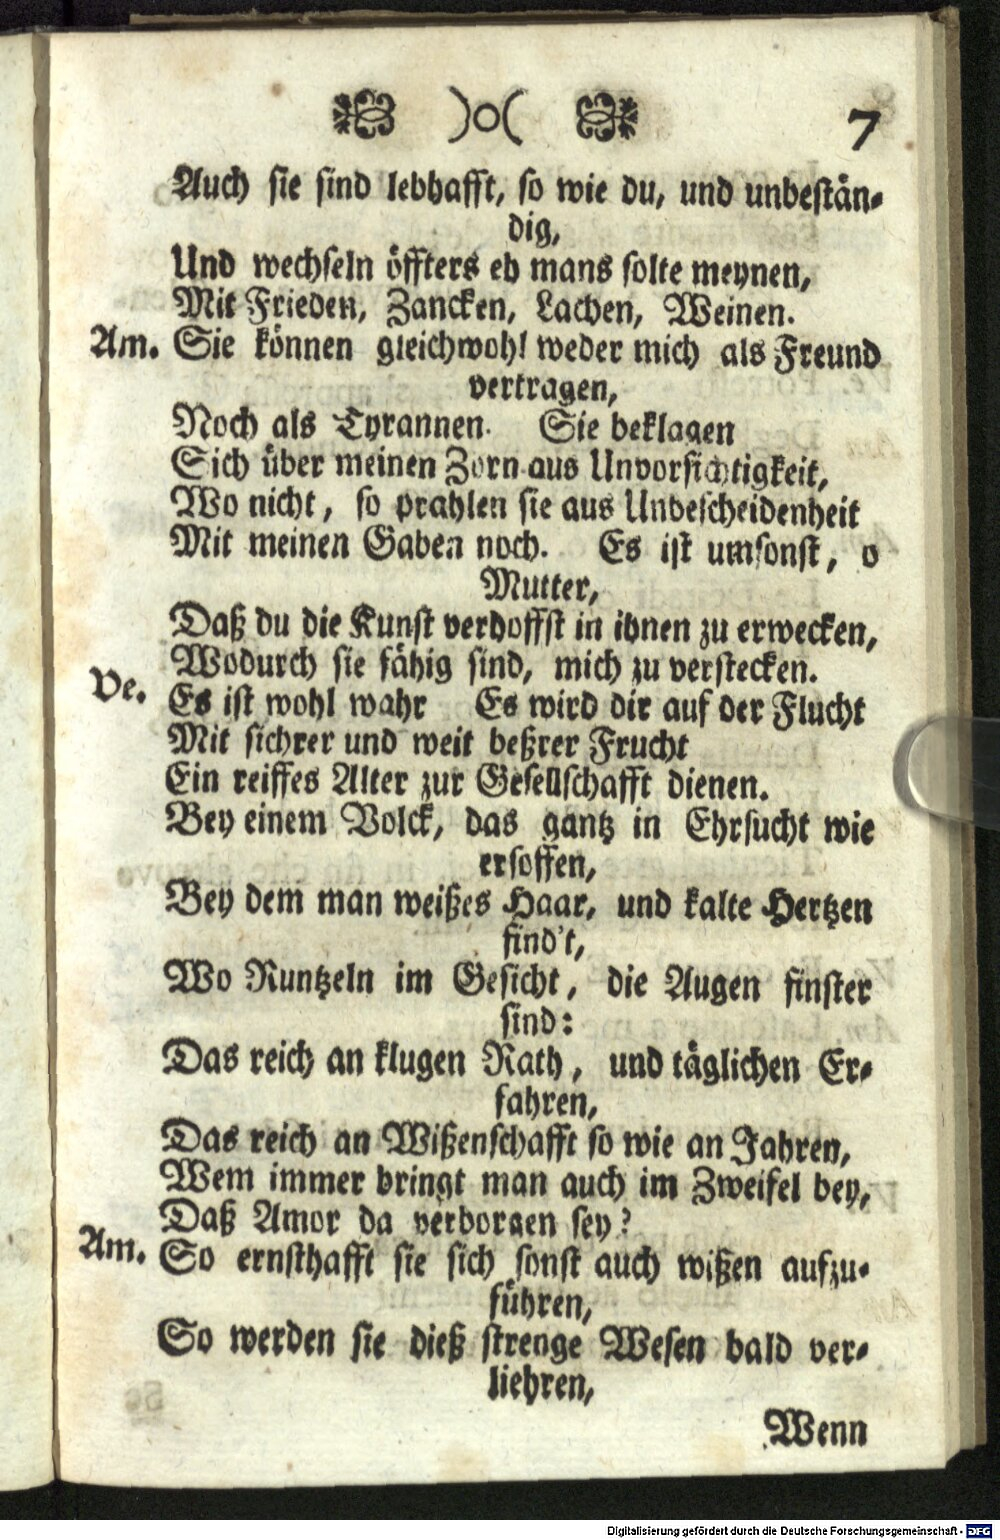 )o( 7
Auch sie sind lebhafft, so wie du, und unbestän-
dig,
Und wechseln öffters eh mans solte meynen,
Mit Frieden, Zancken, Lachen, Weinen.
Am. Sie können gleichwohl weder mich als Freund
vertragen,
Noch als Tyrannen. Sie beklagen
Sich über meinen Zorn aus Unvorsichtigkeit,
Wo nicht, so prahlen sie aus Unbescheidenheit
Mit meinen Gaben noch. Es ist umsonst, o
Mutter,
Daß du die Kunst verhoffst in ihnen zu erwecken,
Wodurch sie fähig sind, mich zu verstecken.
Ve. Es ist wohl wahr Es wird dir auf der Flucht
Mit sichrer und weit beßrer Frucht
Ein reiffes Alter zur Gesellschafft dienen.
Bey einem Volck, das gantz in Ehrsucht wie
ersoffen,
Bey dem man weißes Haar, und kalte Hertzen
find't,
Wo Runtzeln im Gesicht, die Augen finster
sind:
Das reich an klugen Rath, und täglichen Er-
fahren,
Das reich an Wißenschafft so wie an Jahren,
Wem immer bringt man auch im Zweifel bey,
Daß Amor da verborgen sey?
Am. So ernsthafft sie sich sonst auch wißen aufzu-
führen,
So werden sie dieß strenge Wesen bald ver-
liehren,
Wenn
Digitalisierung gefördert durch die Deutsche Forschungsgemeinschaft - DFG